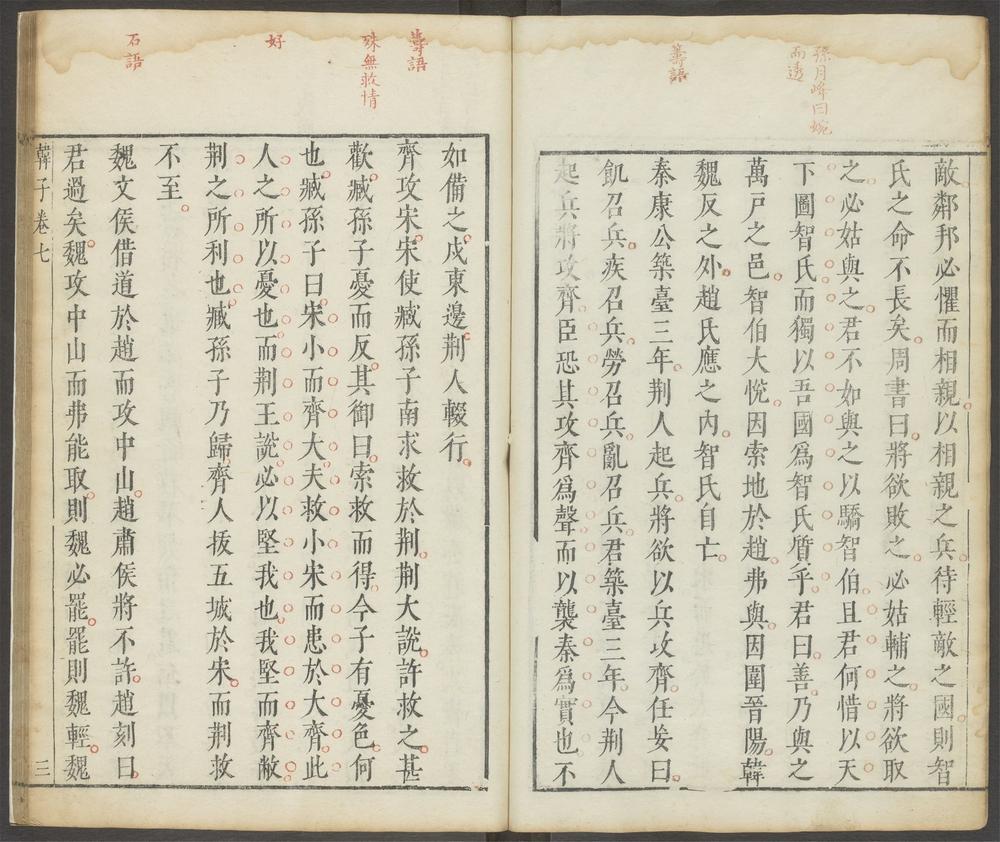 孫月峰曰婉
而透
籌語
敵鄰邦必懼而相親以相親之兵待輕敵之國則智
氏之命不長矣周書曰將欲敗之必姑輔之將欲取
之必姑與之君不如與之以驕智伯且君何惜以天
下圖智氏而獨以吾國爲智氏質乎君曰善乃與之
萬戸之邑智伯大悅因索地於趙弗與因圍晉陽韓
魏反之外趙氏應之内智氏自亡
秦康公築臺三年荆人起兵將欲以兵攻齊任妄曰
飢召兵疾召兵勞召兵亂召兵君築臺三年今荆人
起兵將攻齊臣恐其攻齊爲聲而以襲秦爲實也不
籌語
殊無救情
好
石語
如備之戍東邊荆人輟行
齊攻宋宋使臧孫子南求救於荆荆大說許救之甚
歡臧孫子憂而反其御曰索救而得今子有憂色何
也臧孫子曰宋小而齊大夫救小宋而患於大齊此
人之所以憂也而荆王說必以堅我也我堅而齊敝
荆之所利也臧孫子乃歸齊人拔五城於宋而荆救
不至
魏文侯借道於趙而攻中山趙肅侯將不許趙刻曰
君過矣魏攻中山而弗能取則魏必罷罷則魏輕魏
韓子卷七
三